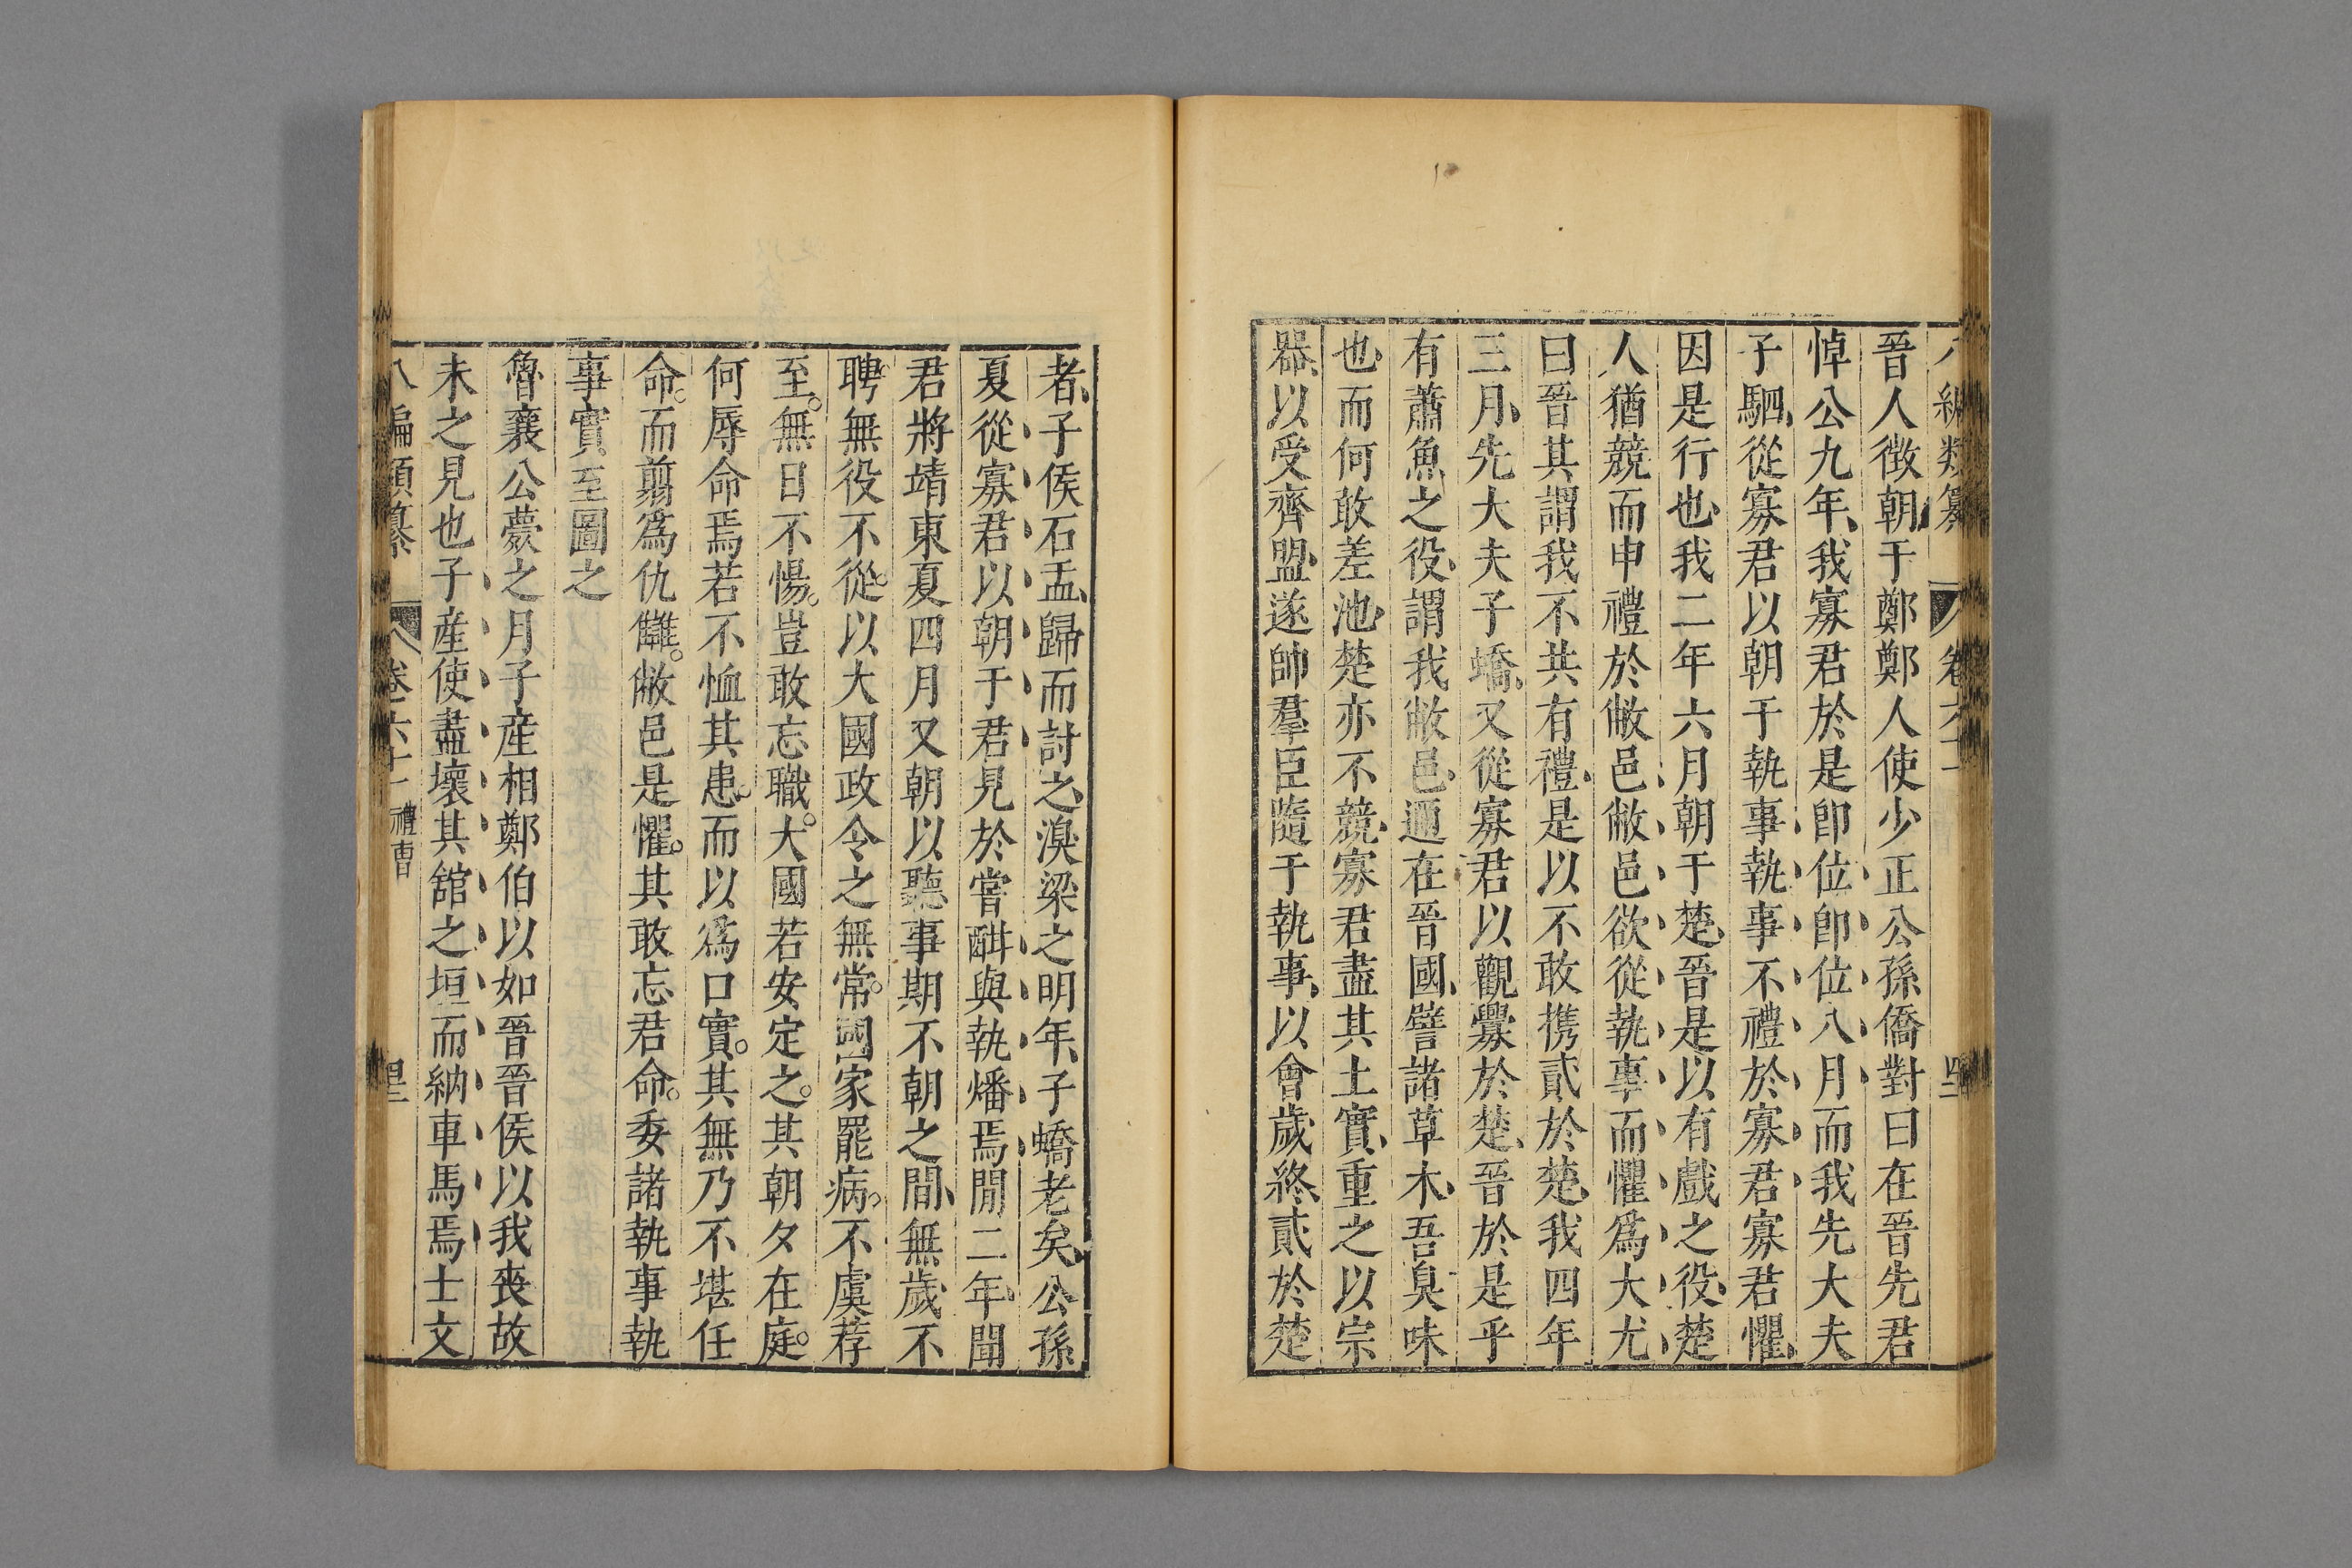 八編類纂 卷六十一
晉人徵朝于鄭鄭人使少正公孫僑對曰在晉先君
悼公九年我寡君於是卽位卽位八月而我先大夫
子駟從寡君以朝于執事執事不禮於寡君寡君懼
因是行也我二年六月朝于楚晉是以有戲之役楚
人猶競而申禮於敝邑敝邑欲從執事而懼爲大尤
曰晉其謂我不共有禮是以不敢携貳於楚我四年
三月先大夫子蟜又從寡君以觀釁於楚晉於是乎
有蕭魚之役謂我敝邑邇在晉國譬諸草木吾臭味
也而何敢差池楚亦不競寡君盡其土實重之以宗
器以受齊盟遂帥羣臣隨于執事以會歲終貳於楚
者子侯石盂歸而討之湨梁之明年子蟜老矣公孫
夏從寡君以朝于君見於嘗酎與執燔焉閒二年聞
君將靖東夏四月又朝以聽事期不朝之間無歲不
聘無役不從以大國政令之無常國家罷病不虞荐
至無日不惕豈敢忘職大國若安定之其朝夕在庭
何辱命焉若不恤其患而以爲口實其無乃不堪任
命而翦爲仇讎敝邑是懼其敢忘君命委諸執事執
事實至圖之
魯襄公薨之月子産相鄭伯以如晉晉侯以我喪故
未之見也子産使盡壞其舘之垣而納車馬焉士文
八編類纂 卷六十一 禮曹